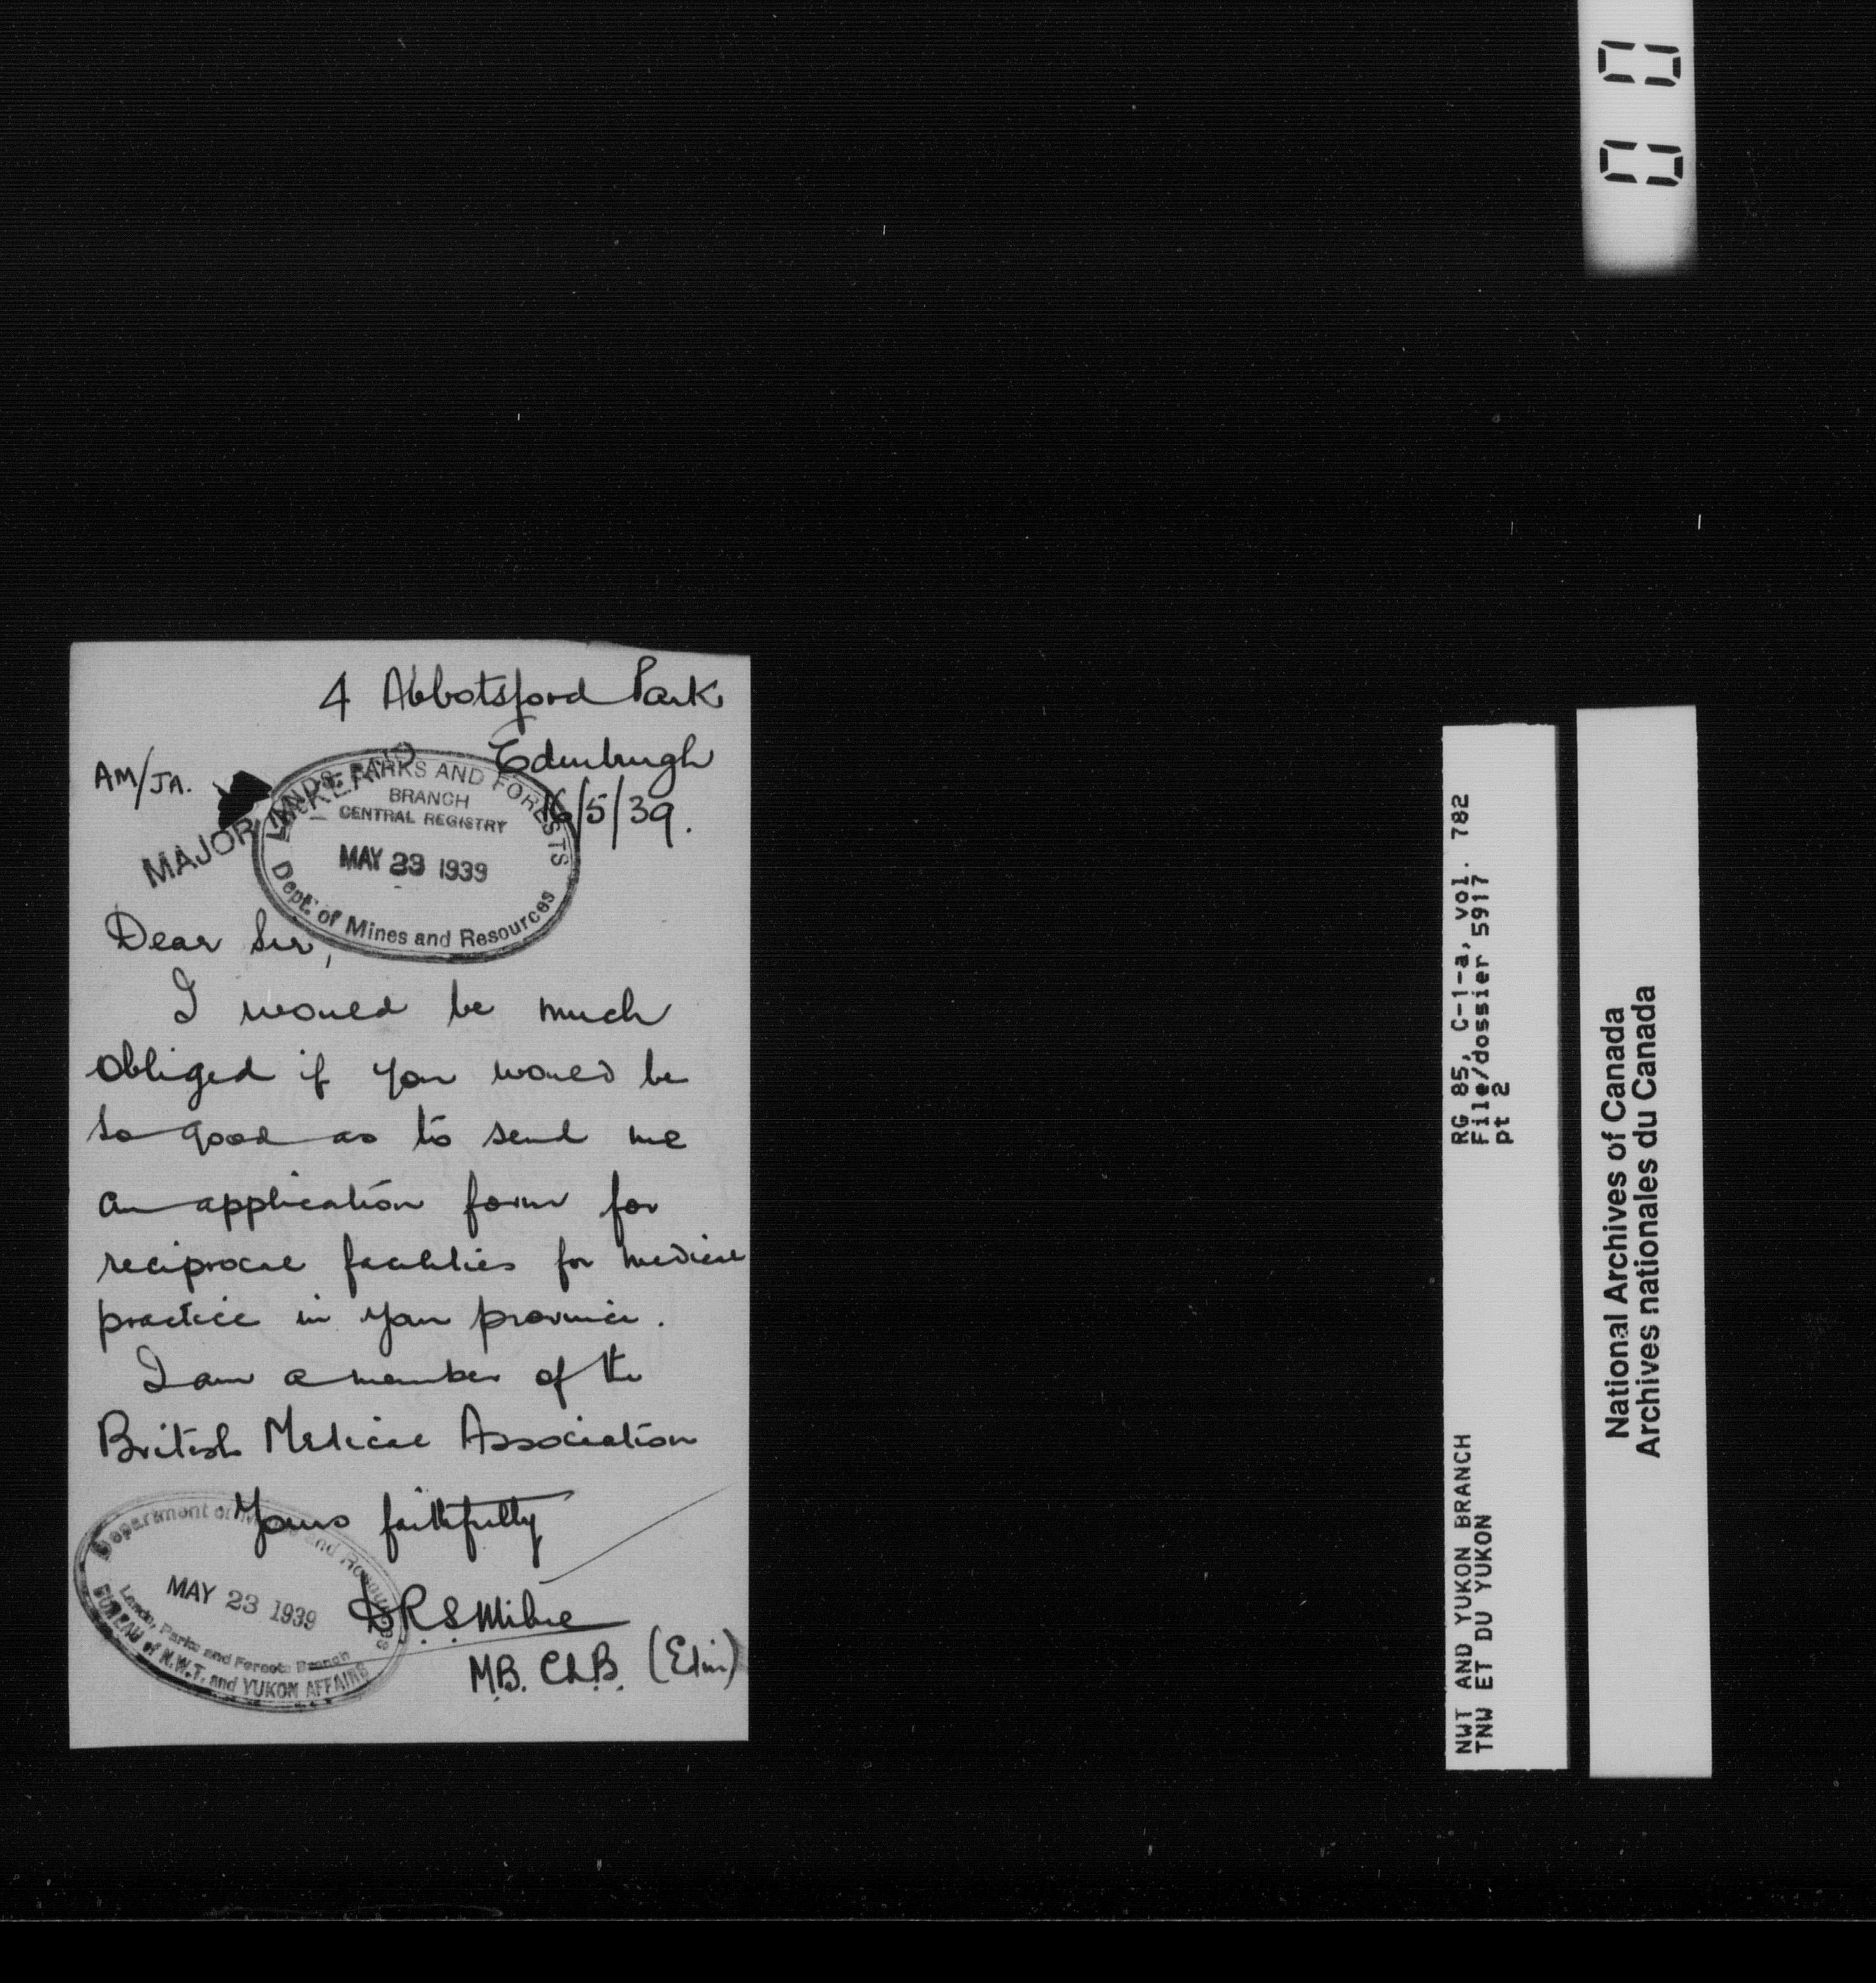 4 Abbotsford Park
Edinburgh
16/5/39.
AM/JA.
MAJOR McKEAND
LANDS, PARKS AND FORESTS
BRANCH
CENTRAL REGISTRY
MAY 23 1939
Dept. of Mines and Resources
Dear Sir,
I would be much
obliged if you would be
so good as to send me
an application form for
reciprocal facilities for medical
practice in your province.
I am a member of the
British Medical Association
Yours faithfully
D.R.S. Milne
M.B. Ch.B. (Edin)
Department of Mines and Resources
MAY 23 1939
Lands, Parks and Forests Branch
BUREAU of N.W.T. and YUKON AFFAIRS
RG 85, C-1-a, vol. 782
File/dossier 5917
pt 2
NWT AND YUKON BRANCH
TNW ET DU YUKON
National Archives of Canada
Archives nationales du Canada